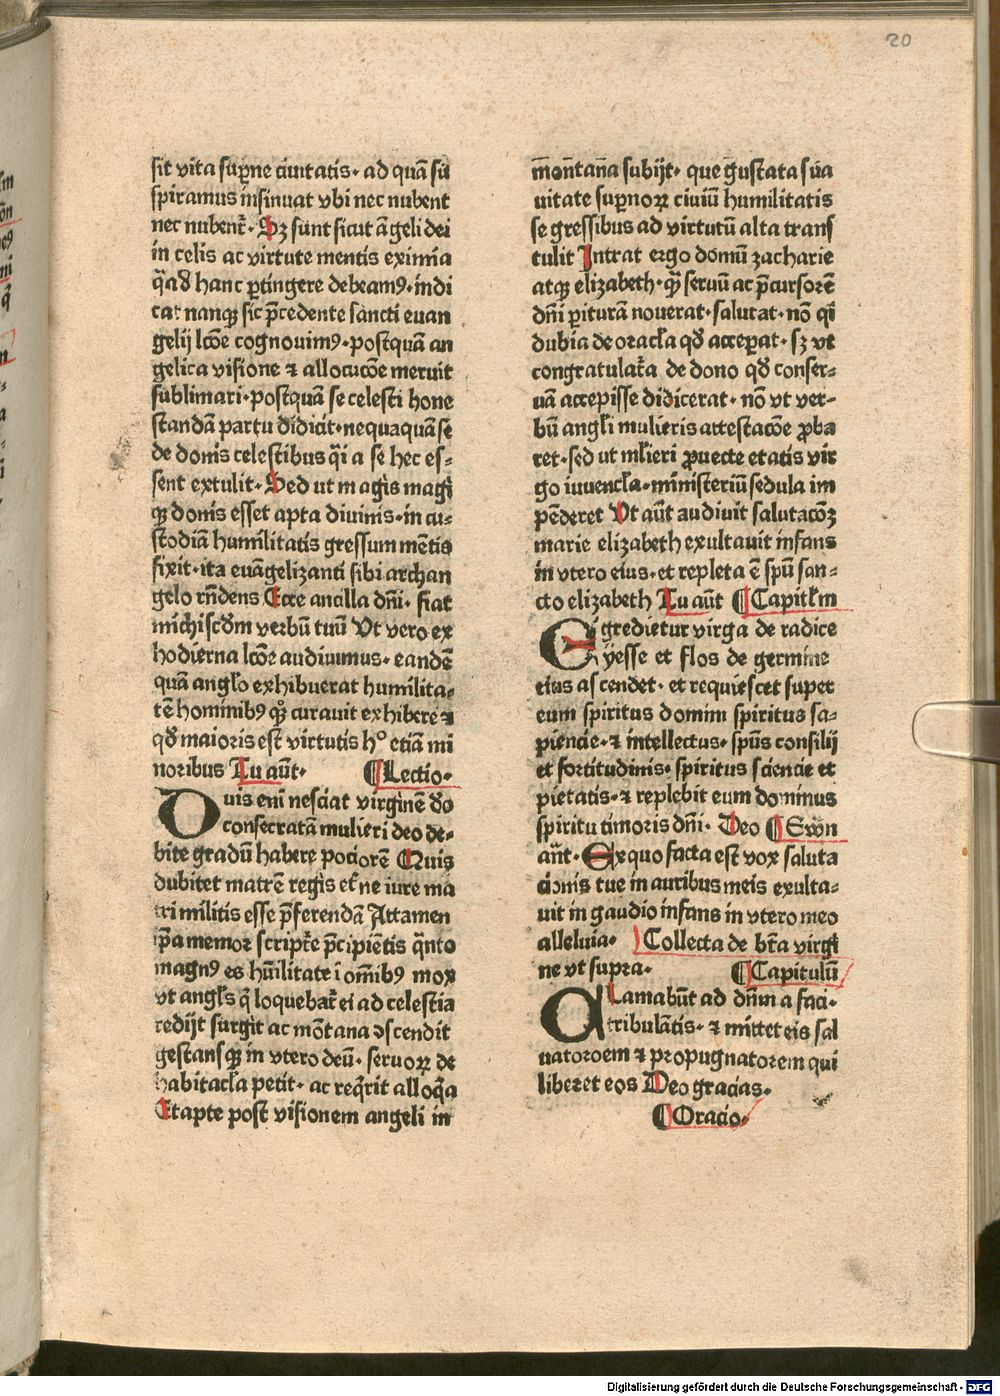 20
sit vita sup̱ne ciuitatis· ad quā su
spiramus insinuat vbi nec nubent
nec nubent᷑· Sꝫ sunt sicut āgeli dei
in celis ac virtute mentis eximia
q̄ad hanc ꝑtingere debeamꝰ· indi
cat nanqꝫ sic p̄cedente sancti euan
gelij lcōe cognouimꝰ· postquā an
gelica visione ⁊ allocucōe meruit
sublimari· postquā se celesti hone
standā partu didicit· nequaquā se
de donis celestibus q̄i a se hec es⸗
sent extulit· Sed ut magis magi
qꝫ donis esset apta diuinis· in cu⸗
stodiā humilitatis gressum mētis
fixit· ita euāgelizanti sibi archan
gelo rn̄dens Ecce ancilla dn̄i· fiat
michi scd̄m verbū tuū Vt vero ex
hodierna lcōe audiuimus· eandē
quā angl̄o exhibuerat humilita⸗
tē hominibꝰ qꝫ curauit exhibere ⁊
qd̄ maioris est virtutis hͦ etiā mi
noribus Tu aūt· ¶Lectio·
Quis eni nesciat virginē do
consecratā mulieri deo de⸗
bite gradū habere pociorē Quis
dubitet matrē regis et̄ne iure ma
tri militis esse p̄ferendā Attamen
ip̄a memor script᷑e p̄cipiētis q̄nto
magnꝰ es hūilitate ī om̄ibꝰ mox
vt angl̄s q̄ loquebat᷑ ei ad celestia
redijt surgit ac mōtana ↄscendit
gestansqꝫ in vtero deū· seruoꝝ dei
habitacl̄a petit· ac req̄rit alloq̄a
Et apte post visionem angeli in
mōntana subijt· que gustata sua
uitate sup̱noꝝ ciuiū humilitatis
se gressibus ad virtutū alta trans
tulit Intrat ergo domū zacharie
atqꝫ elizabeth· qꝫ seruū ac p̄cursorē
dn̄i ꝑiturā nouerat· salutat· nō q̄i
dubia de oracl̄a qd̄ acceperat· sꝫ vt
congratulat᷑a de dono qd̄ conser⸗
uā accepisse didicerat· nō vt ver⸗
bū angl̄i mulieris attestacōe ꝓba
ret· sed ut ml̄ieri ꝓuecte etatis vir
go iuuencl̄a· ministeriū sedula im
pēderet Vt aūt audiuit salutacōꝫ
marie elizabeth exultauit infans
in vtero eius· et repleta ē spū san⸗
cto elizabeth Tu aūt ¶Capitl̄m
Egredietur virga de radice
yesse et flos de germine
eius ascendet· et requiescet super
eum spiritus domini spiritus sa⸗
piencie· ⁊ intellectus· spūs consilij
et fortitudinis· spiritus sciencie et
pietatis· ⁊ replebit eum dominus
spiritu timoris dn̄i· Deo ¶Ewōn
an̄t· Ex quo facta est vox saluta
cionis tue in auribus meis exulta⸗
uit in gaudio infans in vtero meo
alleluia· Collecta de bt̄a virgi
ne vt supra· ¶Capitulū
Clamabūt ad dn̄m a faci⸗
tribulātis· ⁊ mittet eis sal
uatoroem ⁊ propugnatorem qui
liberet eos Deo gracias·
¶Oracio·
Digitalisierung gefördert durch die Deutsche Forschungsgemeinschaft - DFG